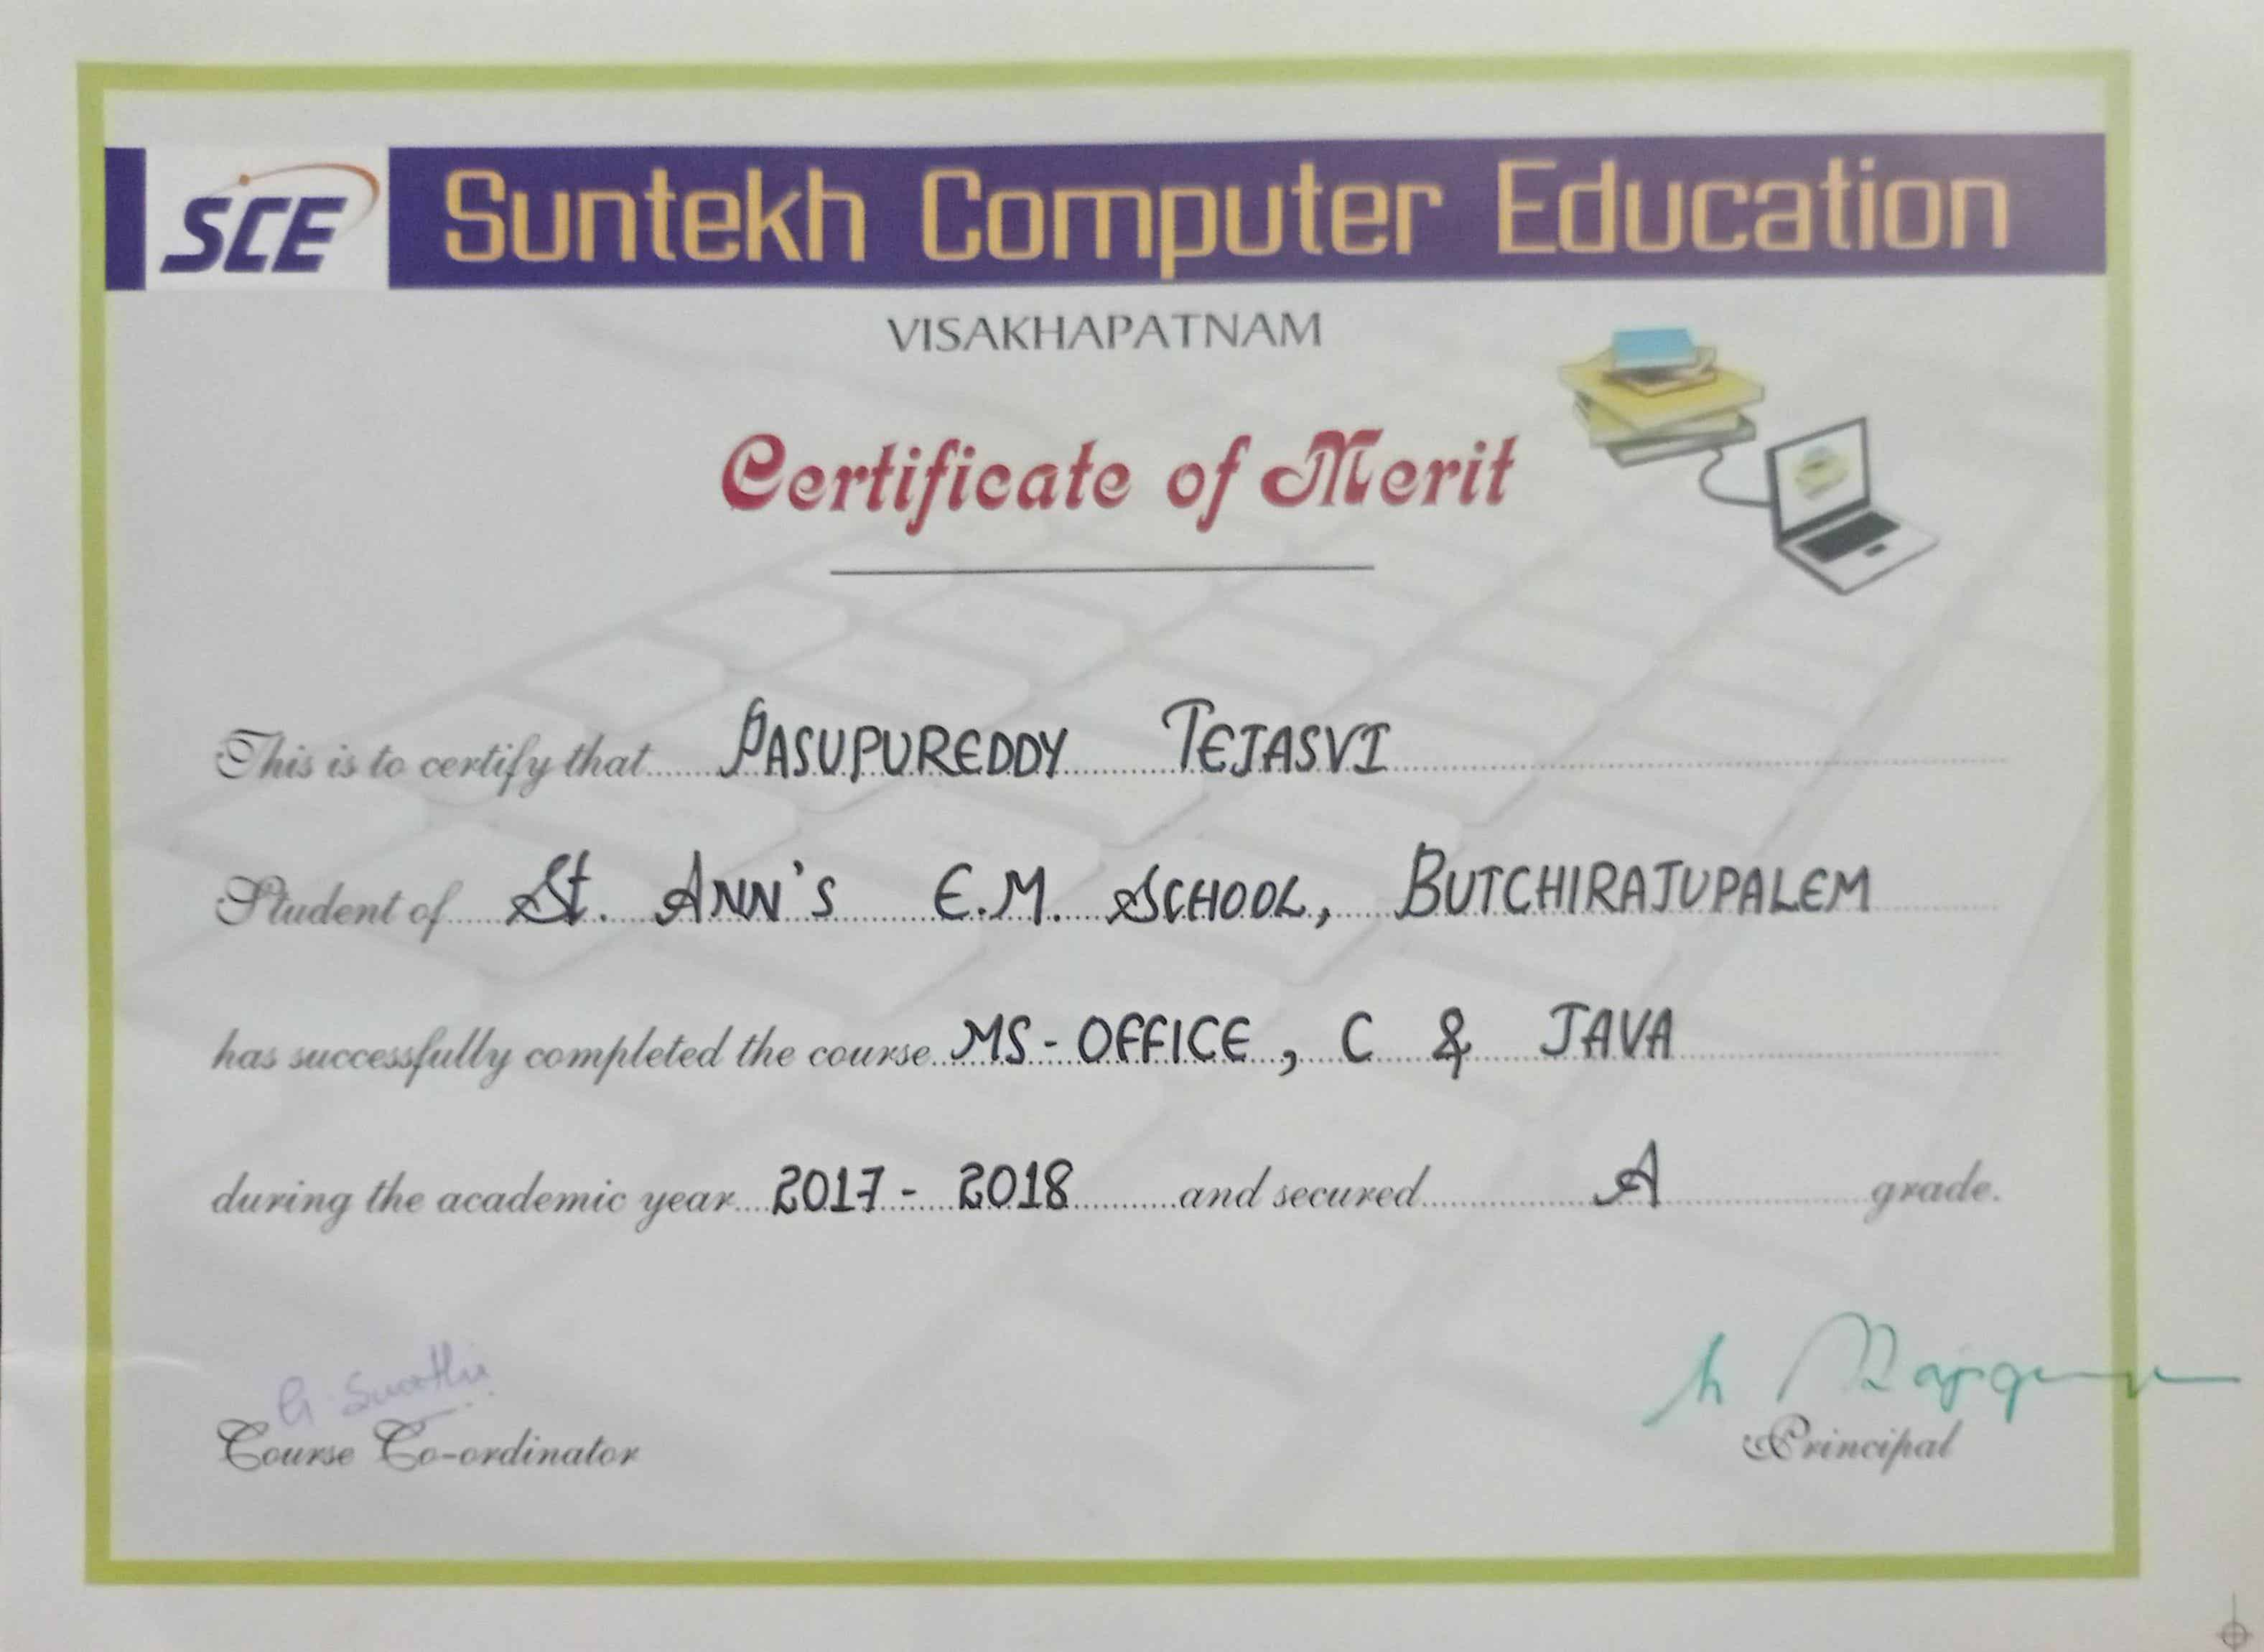 SCE Suntekh Computer Education
VISAKHAPATNAM
Certificate of Merit
This is to certify that PASUPUREDDY TEJASVI
Student of St. ANN'S E.M. SCHOOL, BUTCHIRAJUPALEM
has successfully completed the course MS-OFFICE, C & JAVA
during the academic year 2017 - 2018 and secured A grade.
G. Swathi
Course Co-ordinator
Principal